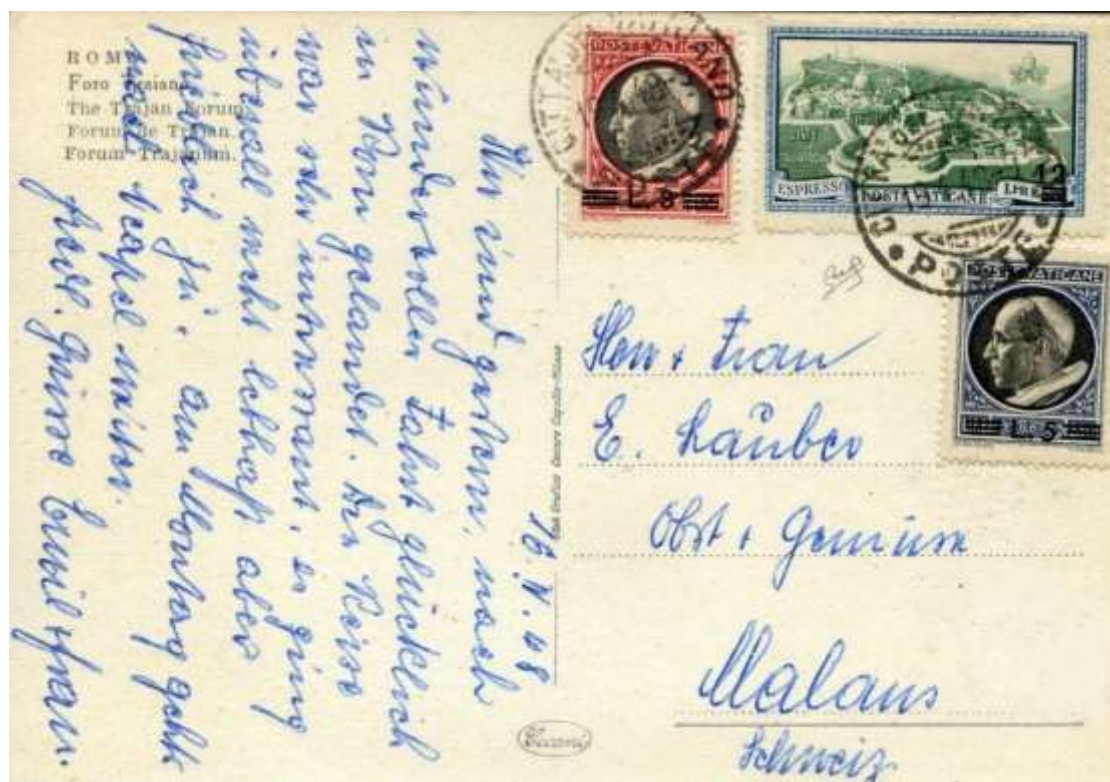 ROMA
Foro Traiano
The Trajan Forum.
Forum de Trajan.
Forum Trajanum.
16. V. 48
Wir sind gestern, nach
wundervoller Fahrt glücklich
in Rom gelandet. Die Reise
war sehr interessant, es ging
überall recht lebhaft aber
friedlich zu. am Montag geht
Neapel weiter.
frdl. Grüsse Emil + Frau.
POSTE VATICANE
L. 3
CITTÀ DEL VATICANO
POSTE
ESPRESSO POSTE VATICANE LIRE
12
POSTE
POSTE VATICANE
L. 5
Herr + Frau
E. Lauber
Obst + Gemüse
Malans
Schweiz